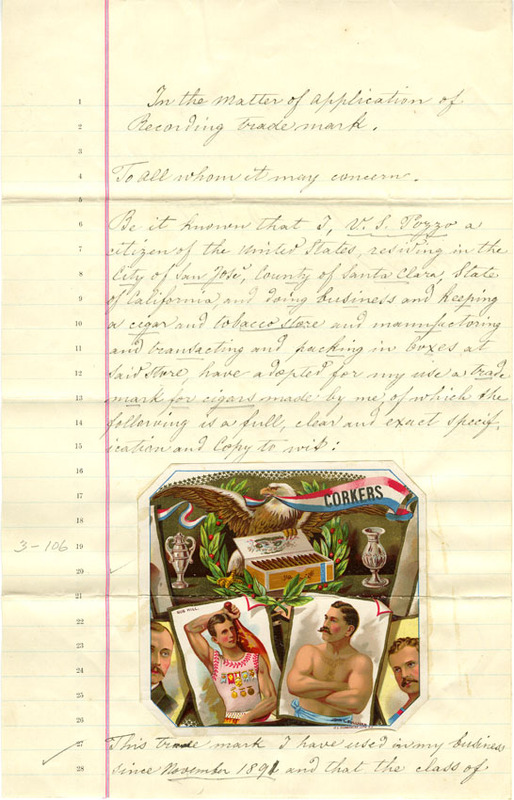 1 In the matter of application of
2 Recording trade mark.
3
4 To all whom it may concern.
5
6 Be it known that I, V. S. Pozzo a
7 citizen of the United States, residing in the
8 City of San José, County of Santa Clara, State
9 of California, and doing business and keeping
10 a cigar and tobacco store and manufactoring
11 and transacting and packing in boxes at
12 said store, have adopted for my use a trade
13 mark for cigars made by me, of which the
14 following is a full, clear and exact specif-
15 ication and Copy to wit:
16
17
18 CORKERS
19 3-106
20
21
22 BOB HILL.
23
24
25
26
27 This trade mark I have used in my business
28 since November 1891 and that the class of